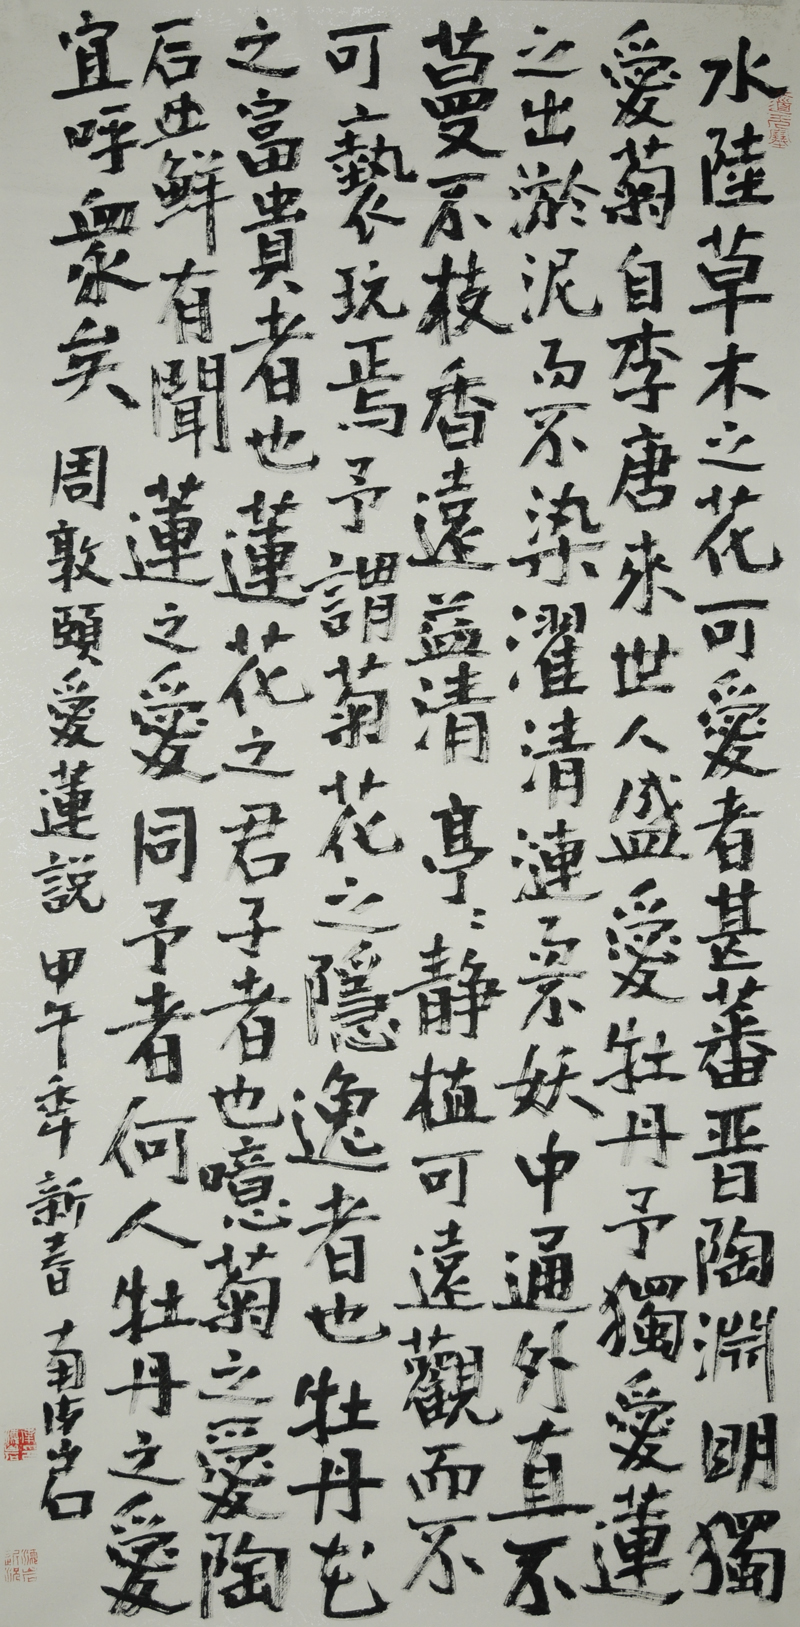 水陸草木之花可愛者甚蕃晋陶淵明獨
愛菊自李唐來世人盛愛牡丹予獨愛蓮
之出淤泥而不染濯清漣而不妖中通外直不
蔓不枝香遠益清亭〻静植可遠觀而不
可褻玩焉予謂菊花之隱逸者也牡丹花
之富貴者也蓮花之君子者也噫菊之愛陶
后世鮮有聞蓮之愛同予者何人牡丹之愛
宜呼衆矣 周敦頤愛蓮説 甲午年新春